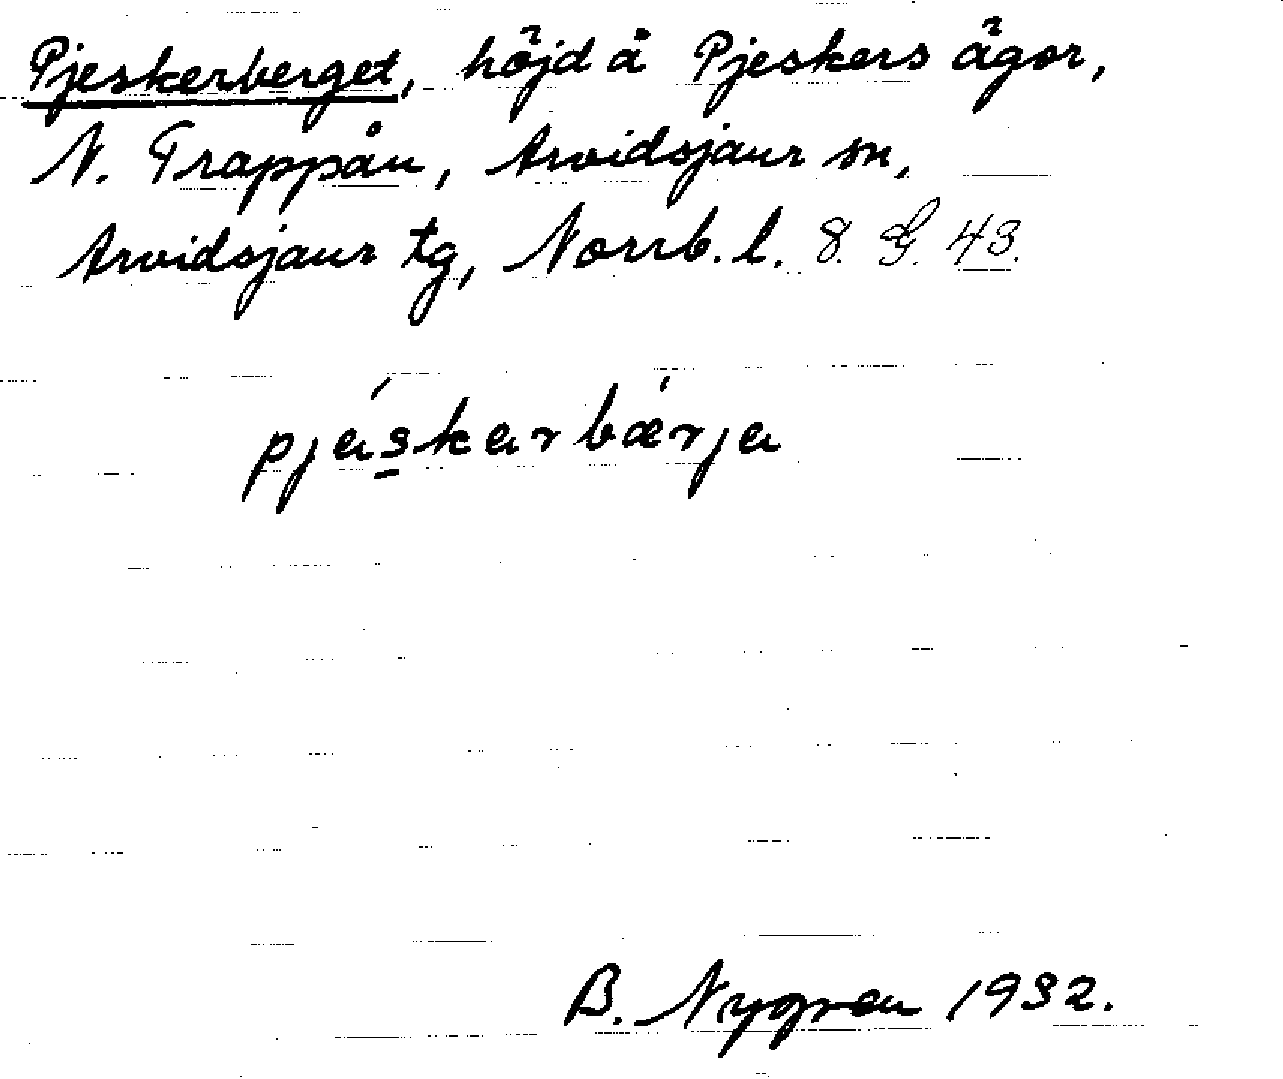 Pjeskerberget, höjd å Pjeskers ägor,
N. Trappån, Arvidsjaur sn,
Arvidsjaur tg, Norrb. l. 8. G. 43.
pjáskarbǽrja
B. Nygren 1932.